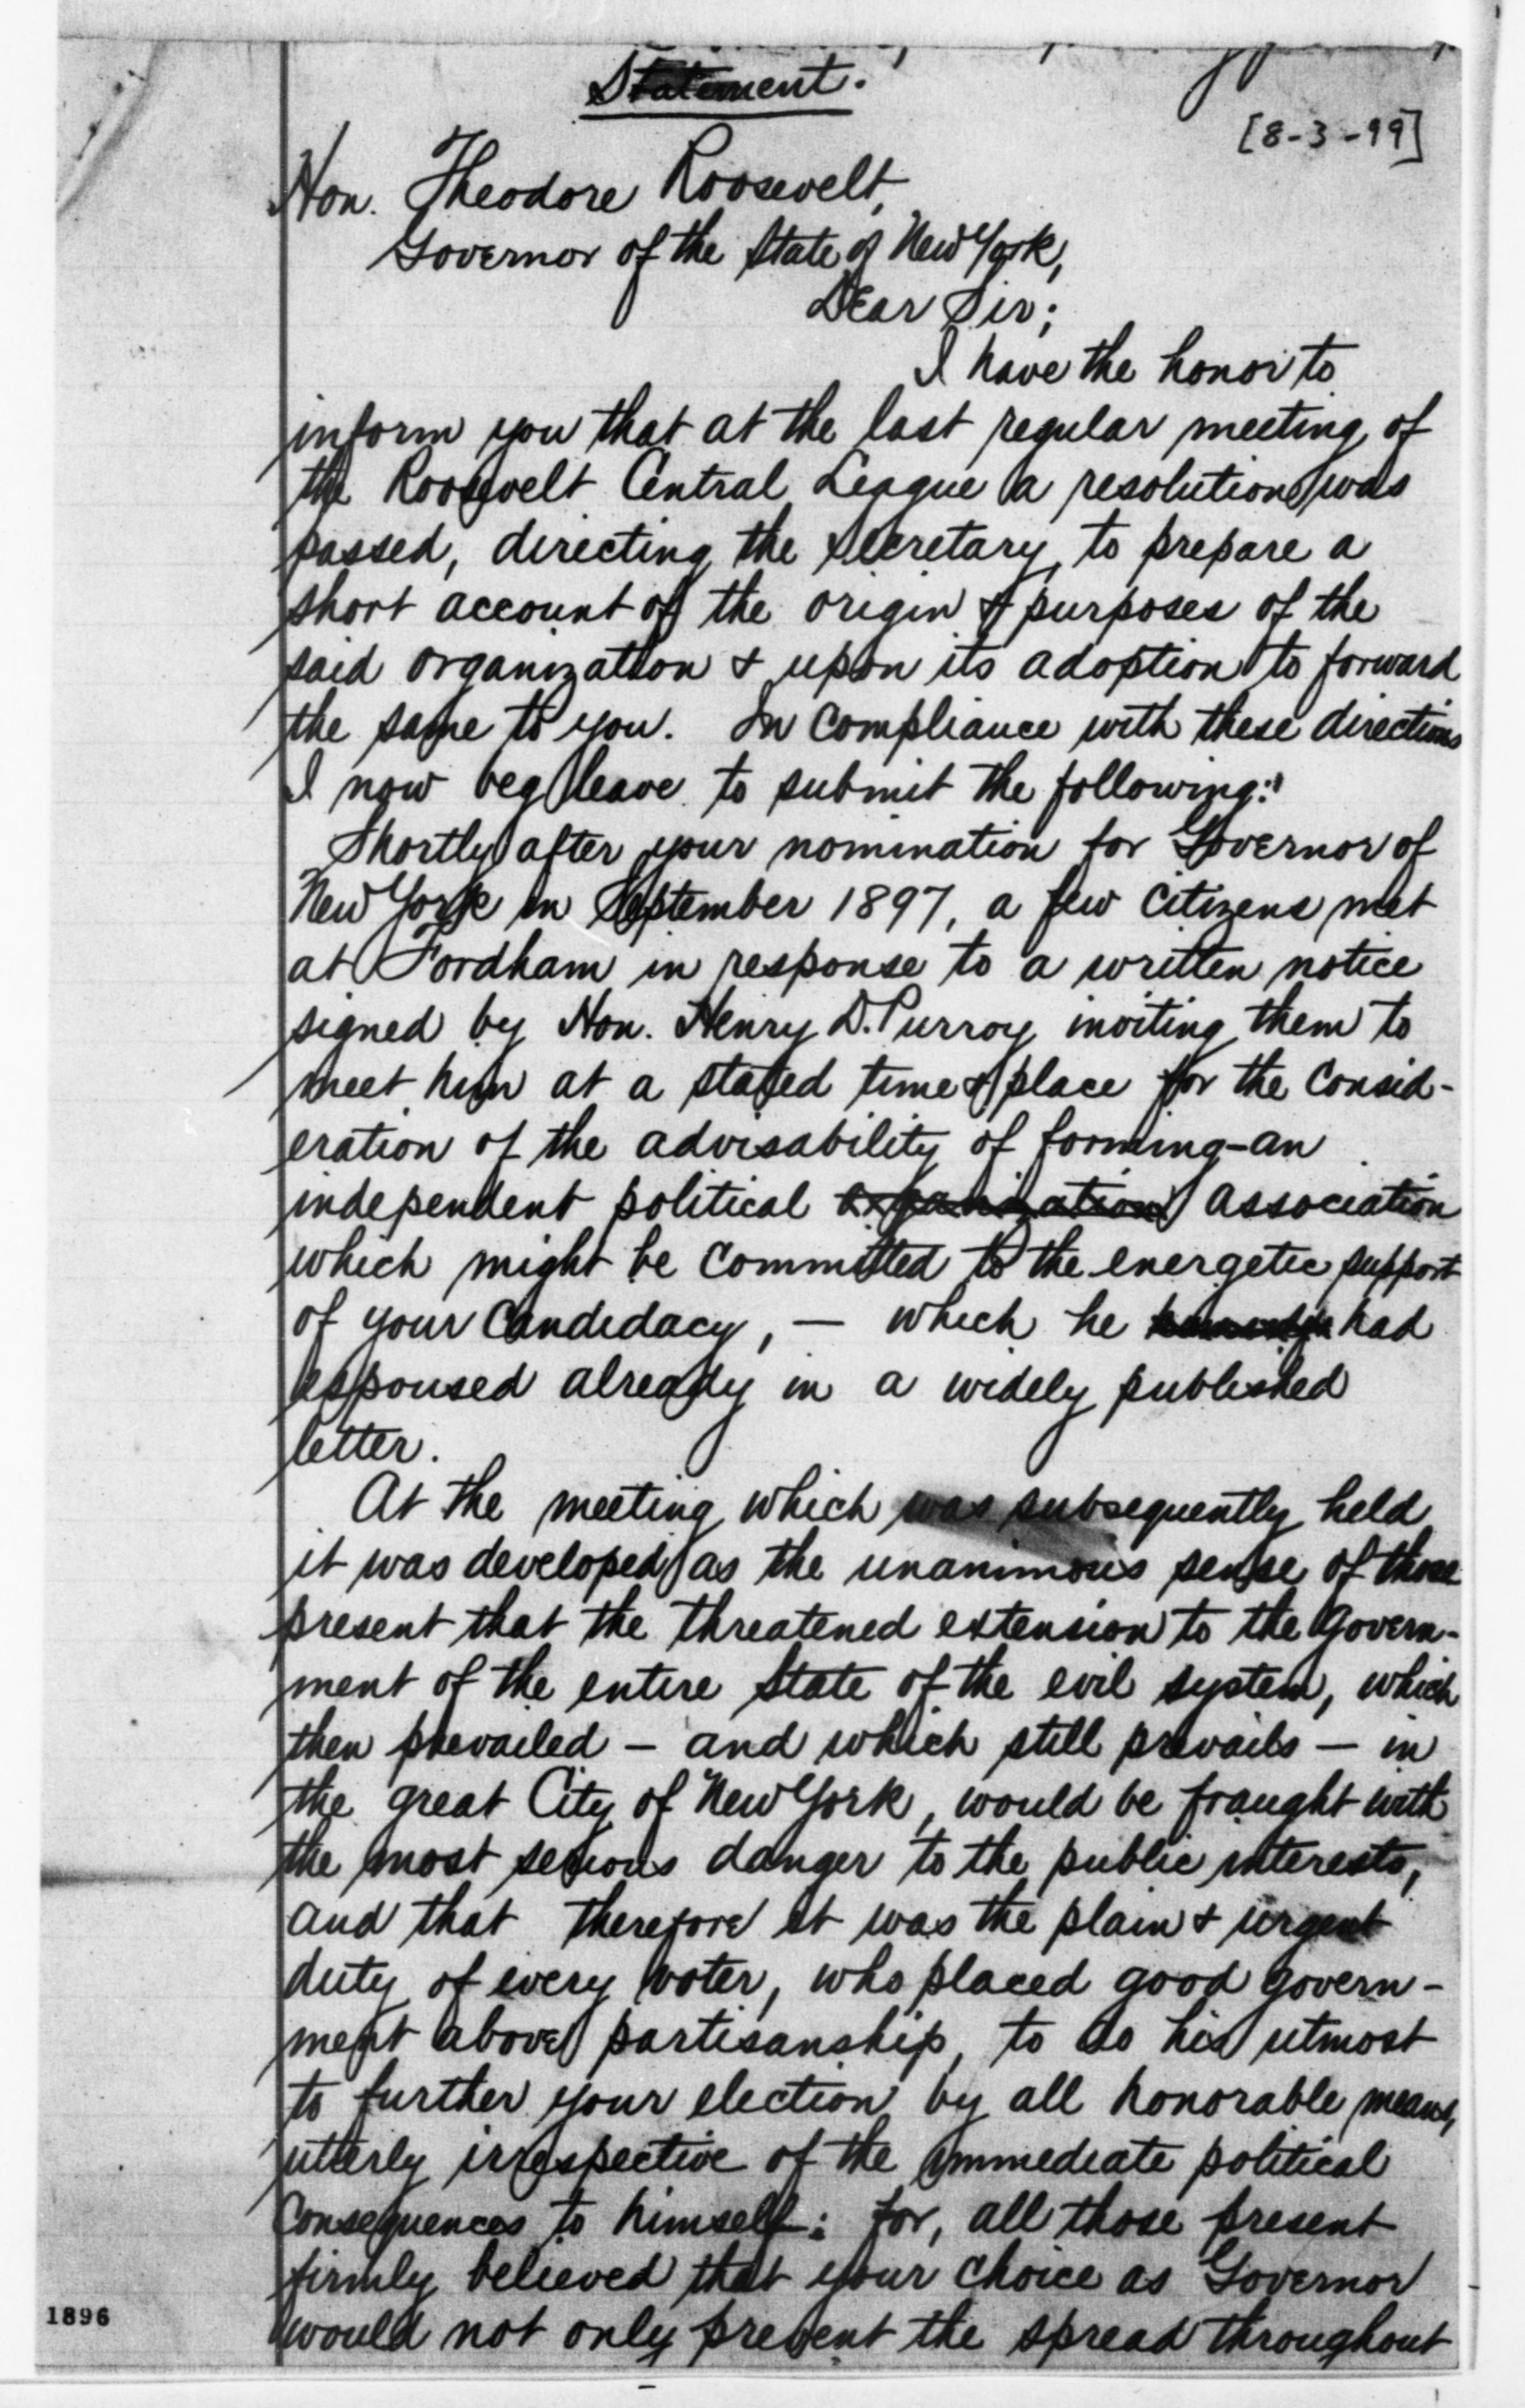 Statement.
[8-3-99]
Hon. Theodore Roosevelt,
Governor of the State of New York,
Dear Sir;
I have the honor to
inform you that at the last regular meeting of
the Roosevelt Central League a resolution was
passed, directing the secretary, to prepare a
short account of the origin & purposes of the
said organization & upon its adoption to forward
the same to you. In compliance with these directions
I now beg leave to submit the following:"
Shortly after your nomination for Governor of
New York in September 1897, a few citizens met
at Fordham in response to a written notice
signed by Hon. Henry D. Purroy inviting them to
meet him at a stated time & place for the consid-
eration of the advisability of forming-an
independent political organization association
which might be committed to the energetic support
of your candidacy, — which he had
espoused already in a widely published
letter.
At the meeting which was subsequently held
it was developed as the unanimous sense of those
present that the threatened extension to the govern-
ment of the entire State of the evil system, which
then prevailed – and which still prevails – in
the great City of New York, would be fraught with
the most serious danger to the public interests,
and that therefore it was the plain & urgent
duty of every voter, who placed good govern-
ment above partisanship, to do his utmost
to further your election by all honorable means,
utterly irrespective of the immediate political
consequences to himself: for, all those present
firmly believed that your choice as Governor
would not only prevent the spread throughout
1896